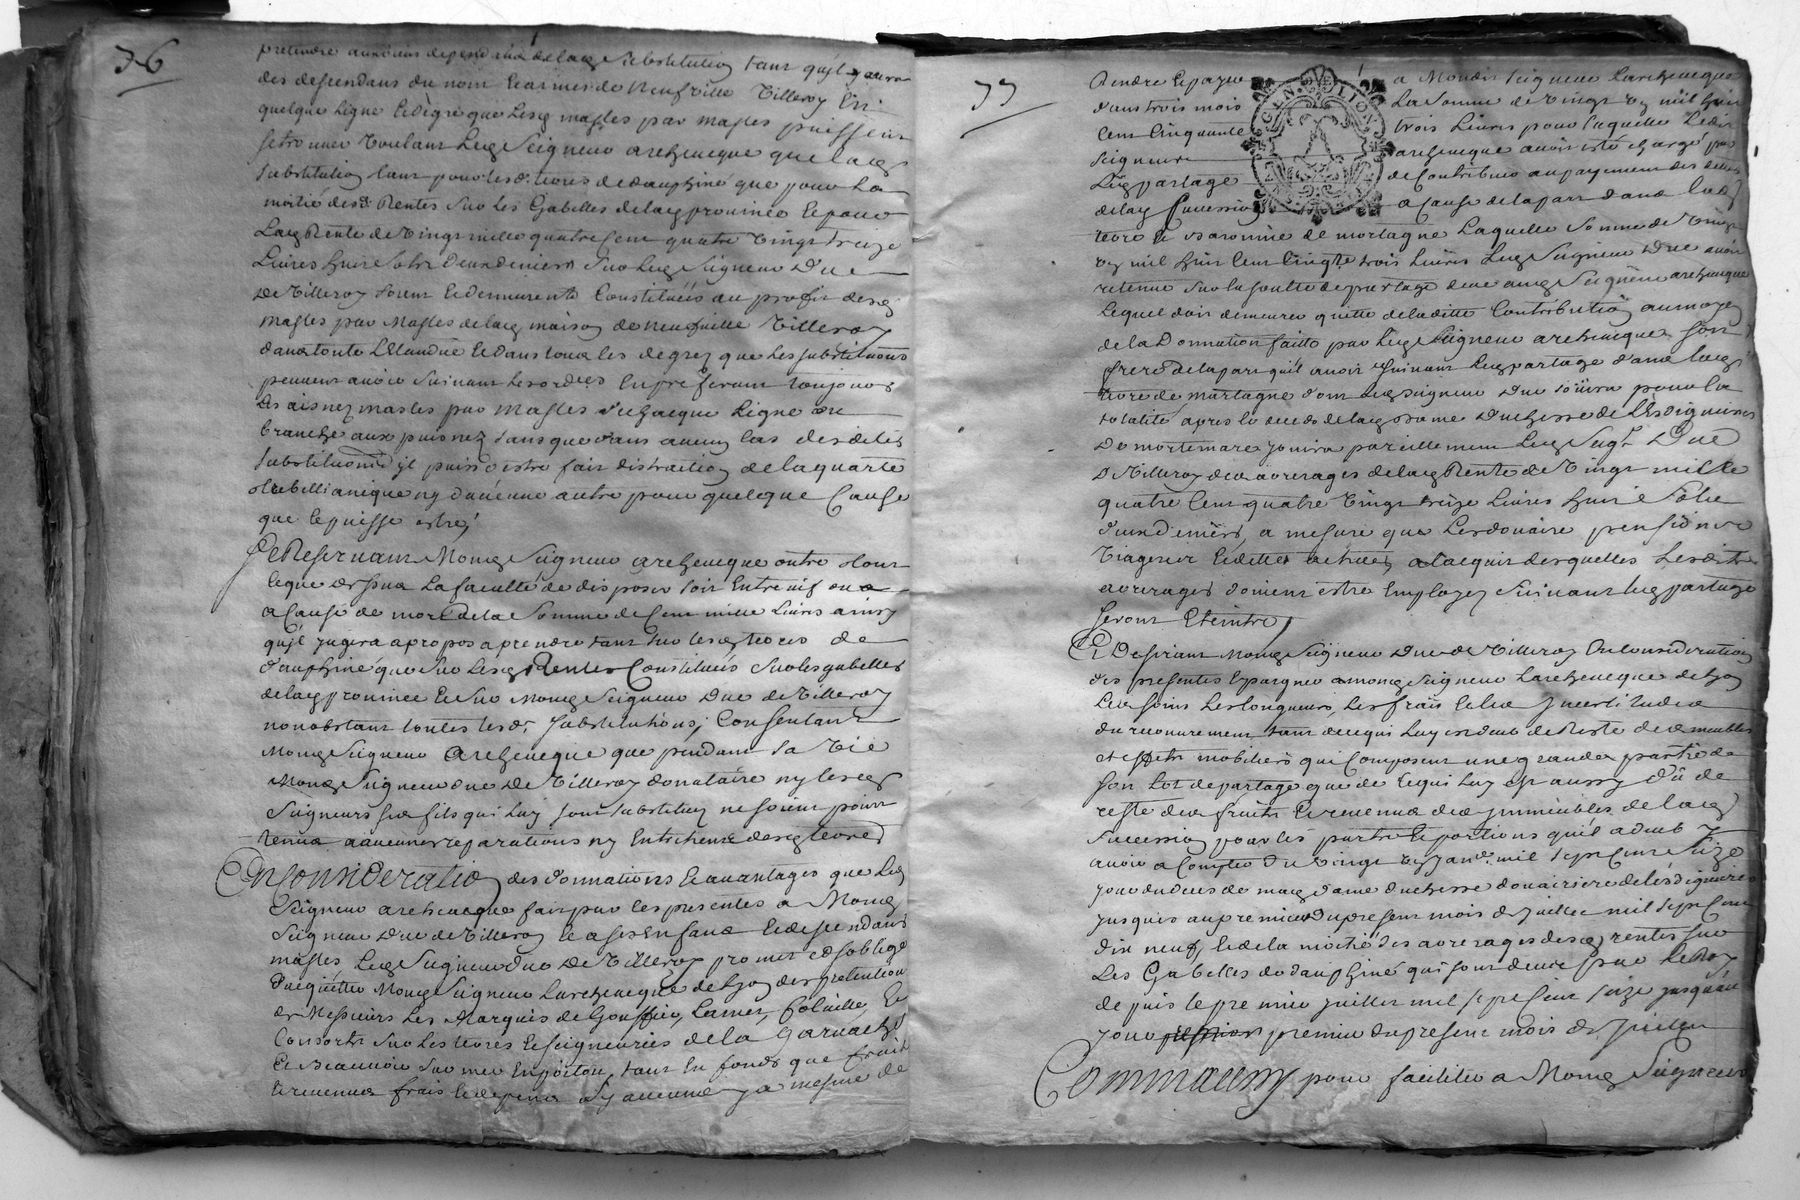 76
pretendre aux biens dependans de lad. substitution tant quil y aura
des descendans du nom et armes de Neufville Villeroy En
quelque ligne et degré que lesd. masles par masles puissent
se trouver Voulant led. Seigneur archevesque que lad.
substitution tant pour lesd. terres de dauphiné que pour la
moitié desd. Rentes sur les Gabelles de lad. province et pour
lad. Rente de Vingt mille quatre cent quatre Vingt treize
Livres huit sols deux deniers sur led. Seigneur Duc
de Villeroy soient et demeurent Constituées au profit desd.
masles par masles de lad. maison de neufville Villeroy
dans toute l'Etandue et dans tous les degrez que les substitutions
peuvent avoir suivant les ordces En preferant toujours
les aisnez masles par masles de chacque Ligne ou
branche aux puisnez sans que dans aucun cas desdites
substitutions il puisse estre fait distraction de la quarte
trebellianique ny d'aucune autre pour quelque Cause
que ce puisse estre,
Se Reservant Mond. Seigneur archevesque outre tout
ce que dessus La faculté de disposer soit Entre vif ou
a Cause de mort de la somme de Cent mille Livres ainsy
qu'il jugera a propos a prendre tant sur lesd. terres de
dauphiné que sur lesd. Rentes Constituées sur les gabelles
de lad. province et sur Mond. Seigneur Duc de Villeroy
nonobstant toutes lesd. substitutions, Consentant
Mond. Seigneur archevesque que pendant sa Vie
Mond. Seigneur duc de Villeroy donataire ny lesd.
Seigneurs ses fils qui luy sont substituez ne soient point
tenus a aucunes reparations ny Entretiens desd. terres
En Consideration des donnations et avantages que led.
Seigneur archevesque fait par les presentes a Mond.
Seigneur Duc de Villeroy et a ses Enfans et descendans
masles Led. Seigneur duc de Villeroy promet et s'oblige
d'acquitter Mond. Seigneur L'archevesque de Lyon des pretentions
de Messieurs Les Marquis de Gouffier, et
Consorts sur Les terres et seigneuries de la Garnache
et Beauvoir sur mer En poitou, tant En fonds que fruits
et revenus frais et depens sy aucuns y a mesme de
77
Rendre et payer a Mondit seigneur L'archevesque
dans trois mois La somme de Vingt un mil huit
Cent Cinquante trois Livres pour laquelle Ledit
Seigneur archevesque avoit esté chargé par
Led. partage de Contribuer au payement des dettes
de lad. succession a Cause de la part dans lad.
terre et Baronnie de mortagne Laquelle somme de Vingt
un mil huit Cent Cinqte trois Livres Led. Seigneur Duc avoit
retenue sur la soulte de partage deue aud. Seigneur archevesque
Lequel doit demeurer quitte de laditte Contribution au moyen
de la Donnation faitte par Led. Seigneur archevesque son
frere de la part qu'il avoit suivant Led. partage dans lad.
terre de mortagne dont Led. seigneur Duc jouira pour la
totalité apres le deceds de lad. dame Duchesse de L'Esdiguieres
De mortemare jouira pareillement Led. Seigr. Duc
de Villeroy des arrerages de lad. Rente de Vingt mille
quatre Cent quatre Vingt treize Livres huit sols
deux deniers, a mesure que Les douaire pensions
Viageres et dettes actives a l'acquit desquelles Lesdits
arrerages doivent estre Employez suivant led. partage
seront Eteintes,
Et Desirant Mond. Seigneur Duc de Villeroy En Consideration
des presentes Epargner a mond. seigneur L'archevesque de Lyon
Les soins Les longueurs, Les frais et les Incertitudes
du recouvrement tant de ce qui Luy est deub de Reste des meubles
et effets mobiliers qui Composent une grande partie de
son Lot de partage que de ce qui Luy est aussy dû de
reste des fruits et revenus des immeubles de lad.
succession pour les parts et portions qu'il a deub y
avoir a Compter du Vingt un janer. mil sept Cent seize
jour du deces de mad. dame duchesse douairiere de lesdiguieres
jusques au premier du present mois de juillet mil sept Cent
dix neuf, et de la moitié des arrerages desd. rentes sur
Les Gabelles de dauphiné qui sont deues par le Roy
depuis le premier juillet mil sept Cent seize jusqu'au
jour premier du present mois de Juillet
Comm'aussy pour faciliter a Mond. Seigneur